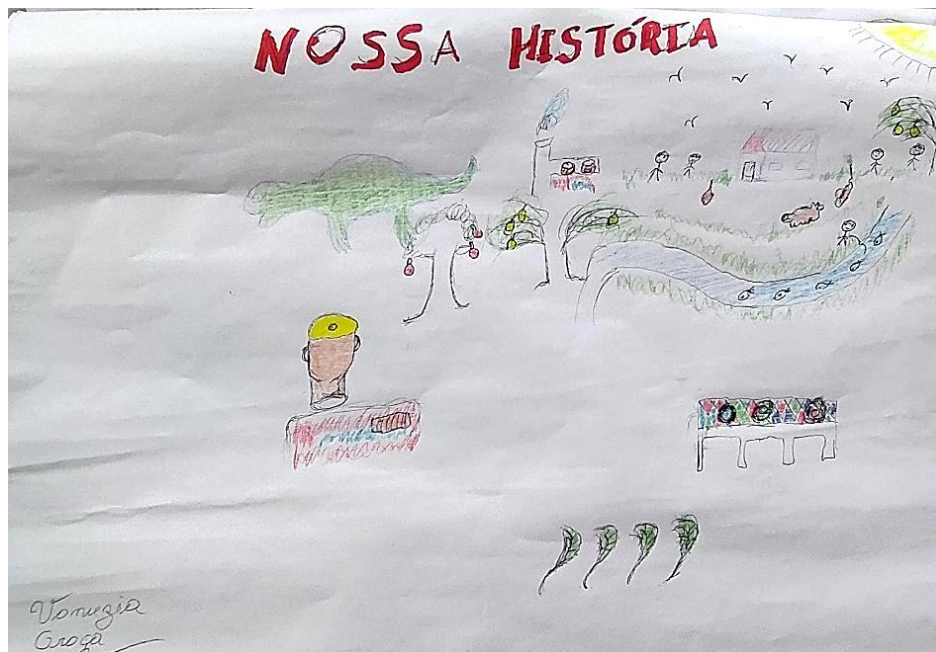 NOSSA HISTÓRIA
Vanuzia
Graça